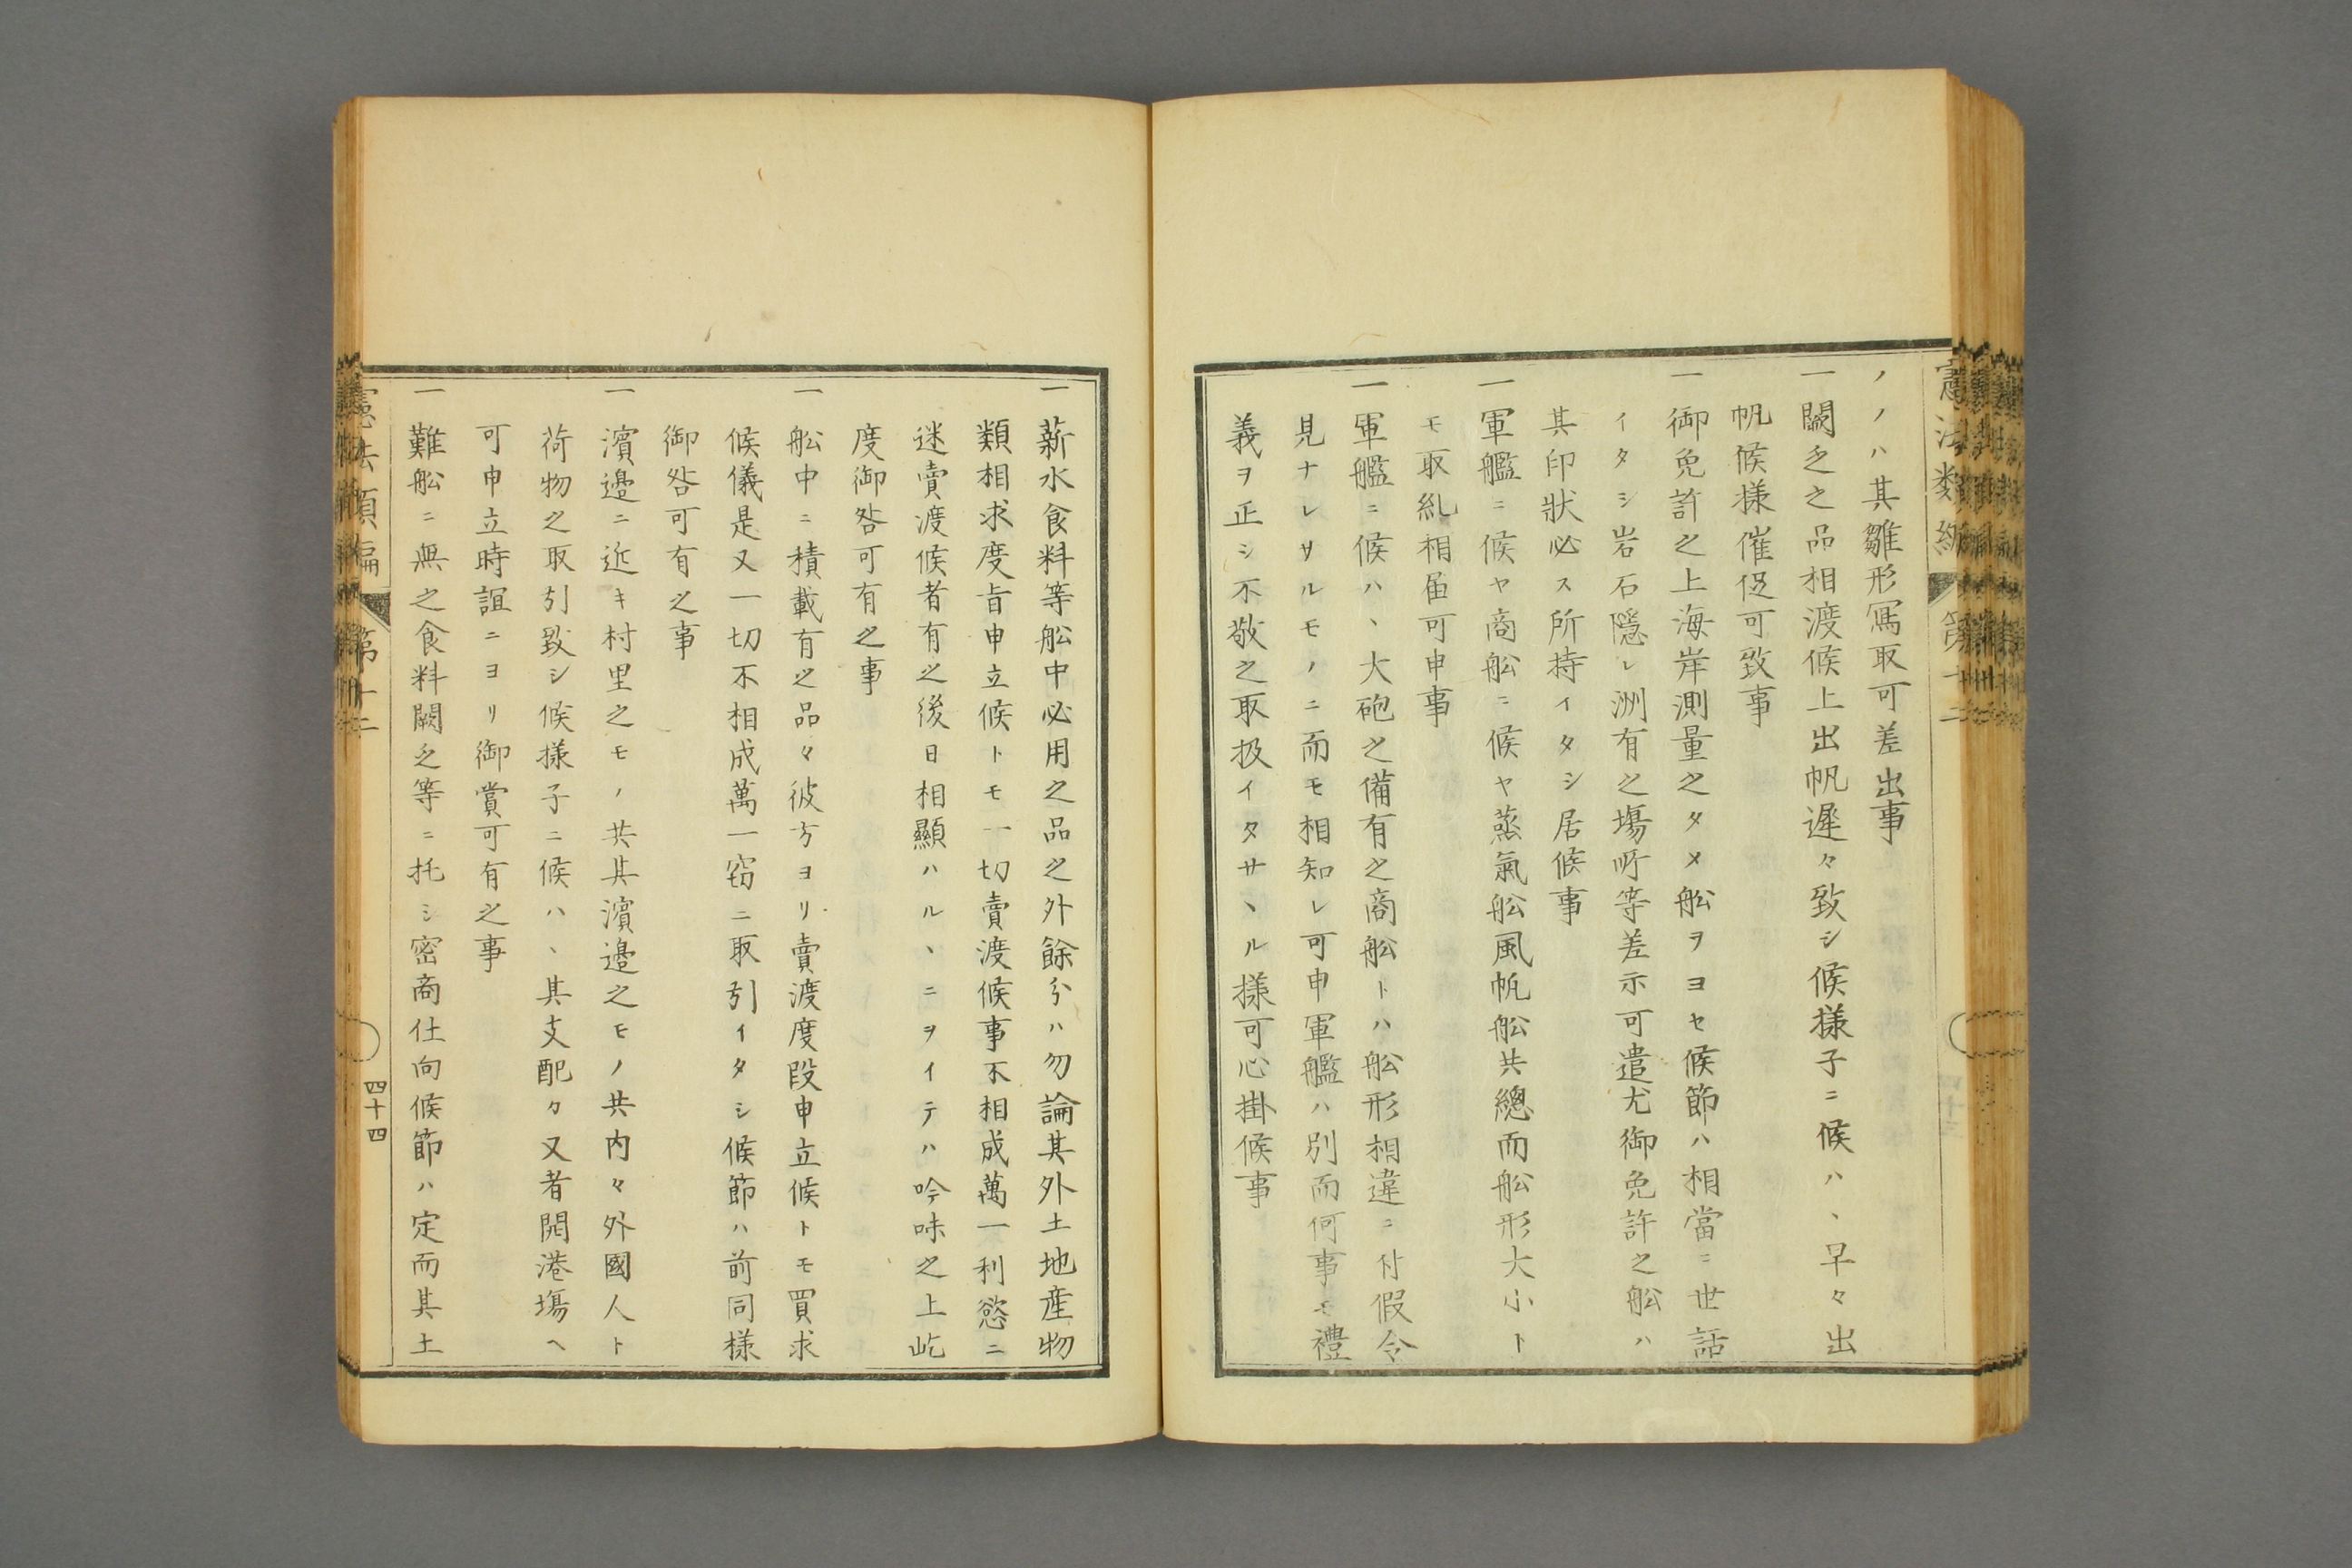 ノノハ其雛形寫取可差出事
一闕乏之品相渡候上出帆遲々致シ候樣子ニ候ハヽ早々出
帆候樣催促可致事
一御免許之上海岸測量之タメ舩ヲヨセ候節ハ相當ニ世話
イタシ岩石隱レ洲有之塲所等差示可遣尤御免許之舩ハ
其印狀必ス所持イタシ居候事
一軍艦ニ候ヤ商舩ニ候ヤ蒸氣舩風帆舩共總而舩形大小ト
モ取糺相届可申事
一軍艦ニ候ハヽ大砲之備有之商舩トハ舩形相違ニ付假令
見ナレサルモノニ而モ相知レ可申軍艦ハ別而何事モ禮
義ヲ正シ不敬之取扱イタサヽル樣可心掛候事
一薪水食料等舩中必用之品之外餘分ハ勿論其外土地産物
類相求度旨申立候トモ一切賣渡候事不相成萬一利慾ニ
迷賣渡候者有之後日相顯ハルヽニヲイテハ吟味之上屹
度御咎可有之事
一舩中ニ積載有之品々彼方ヨリ賣渡度段申立候トモ買求
候儀是又一切不相成萬一窃ニ取引イタシ候節ハ前同樣
御咎可有之事
一濱邉ニ近キ村里之モノ共其濱邉之モノ共内々外國人ト
荷物之取引致シ候樣子ニ候ハヽ其支配々又者開港塲ヘ
可申立時誼ニヨリ御賞可有之事
一難舩ニ無之食料闕乏等ニ托シ密商仕向候節ハ定而其土
憲法類編 第十二
四十四